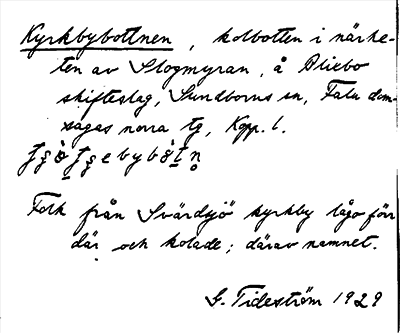 Kyrkbybottnen, kolbotten i närhe-
ten av Slogmyran, å Blixbo
skifteslag, Sundborns sn, Falu dom-
sagas norra tg, Kopp. l.
Folk från Svärdsjö kyrkby lågo förr
där och kolade; därav namnet.
G. Tideström 1929